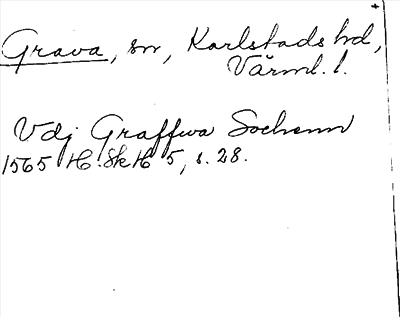 Grava, sn, Karlstads hd,
Värml. l.
Vdj Graffwa Sochenn
1565 H. Sk H 5, s. 28.